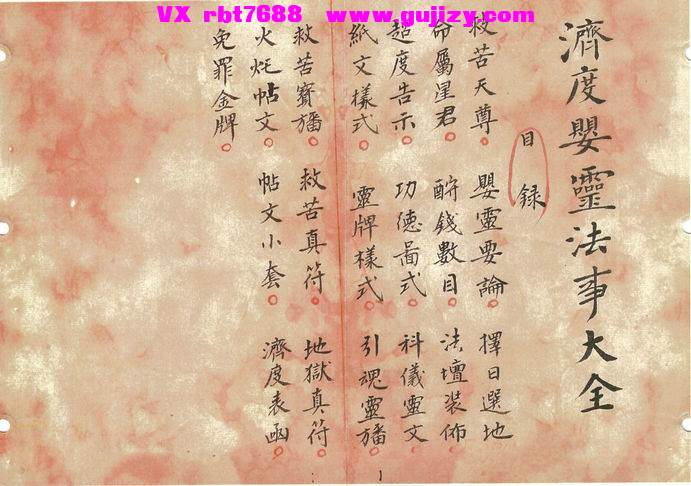 VX rbt7688 www.gujizy.com
濟度嬰靈法事大全
目錄
救苦天尊。嬰靈要論。擇日選地
命屬星君。酧錢數目。法壇裝佈
超度告示。功德啚式。科儀靈文。
紙文樣式。靈牌樣式。引魂靈旛。
救苦寳旛。救苦真符。地獄真符。
火炬帖文。帖文小套。濟度表函。
免罪金牌。
1